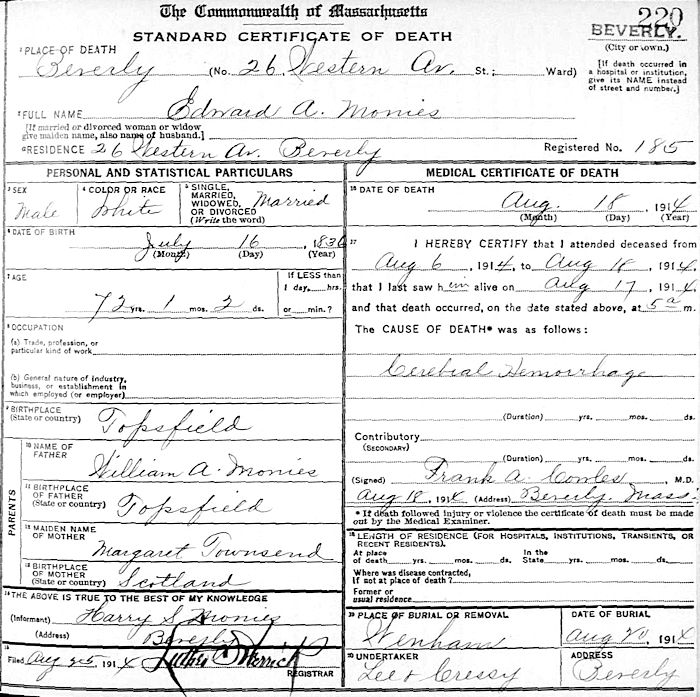 The Commonwealth of Massachusetts
220
STANDARD CERTIFICATE OF DEATH
BEVERLY.
(City or town.)
1 PLACE OF DEATH
Beverly (No. 26 Western Av. St.; Ward)
[If death occurred in a hospital or institution, give its NAME instead of street and number.]
2 FULL NAME Edward A. Monies
[If married or divorced woman or widow give maiden name, also name of husband.]
a RESIDENCE 26 Western Av. Beverly
Registered No. 185
PERSONAL AND STATISTICAL PARTICULARS
3 SEX
Male
4 COLOR OR RACE
White
5 SINGLE, MARRIED, WIDOWED, OR DIVORCED (Write the word)
Married
6 DATE OF BIRTH
July 16, 183
(Month) (Day) (Year)
7 AGE
72 yrs. 1 mos. 2 ds.
If LESS than 1 day, hrs.
or min.?
8 OCCUPATION
(a) Trade, profession, or particular kind of work
(b) General nature of industry, business, or establishment in which employed (or employer)
9 BIRTHPLACE (State or country) Topsfield
PARENTS
10 NAME OF FATHER
William A. Monies
11 BIRTHPLACE OF FATHER (State or country) Topsfield
12 MAIDEN NAME OF MOTHER
Margaret Townsend
13 BIRTHPLACE OF MOTHER (State or country) Scotland
14 THE ABOVE IS TRUE TO THE BEST OF MY KNOWLEDGE
(Informant) Harry S. Monies
(Address) Beverly
15
Filed Aug 25, 1914
REGISTRAR
MEDICAL CERTIFICATE OF DEATH
16 DATE OF DEATH
Aug. 18, 1914
(Month) (Day) (Year)
17 I HEREBY CERTIFY that I attended deceased from
Aug 6, 1914, to Aug 18, 1914
that I last saw him alive on Aug 17, 1914
and that death occurred, on the date stated above, at 5 a m.
The CAUSE OF DEATH* was as follows:
Cerebral Hemorrhage
(Duration) yrs. mos. ds.
Contributory
(SECONDARY)
(Duration) yrs. mos. ds.
(Signed) Frank A. Cowles, M.D.
Aug 18, 1914 (Address) Beverly. Mass.
* If death followed injury or violence the certificate of death must be made out by the Medical Examiner.
18 LENGTH OF RESIDENCE (FOR HOSPITALS, INSTITUTIONS, TRANSIENTS, OR RECENT RESIDENTS).
At place of death yrs. mos. ds. In the State yrs. mos. ds.
Where was disease contracted, if not at place of death?
Former or usual residence
19 PLACE OF BURIAL OR REMOVAL
Wenham
DATE OF BURIAL
Aug 20, 1914
20 UNDERTAKER
Lee & Cressy
ADDRESS
Beverly